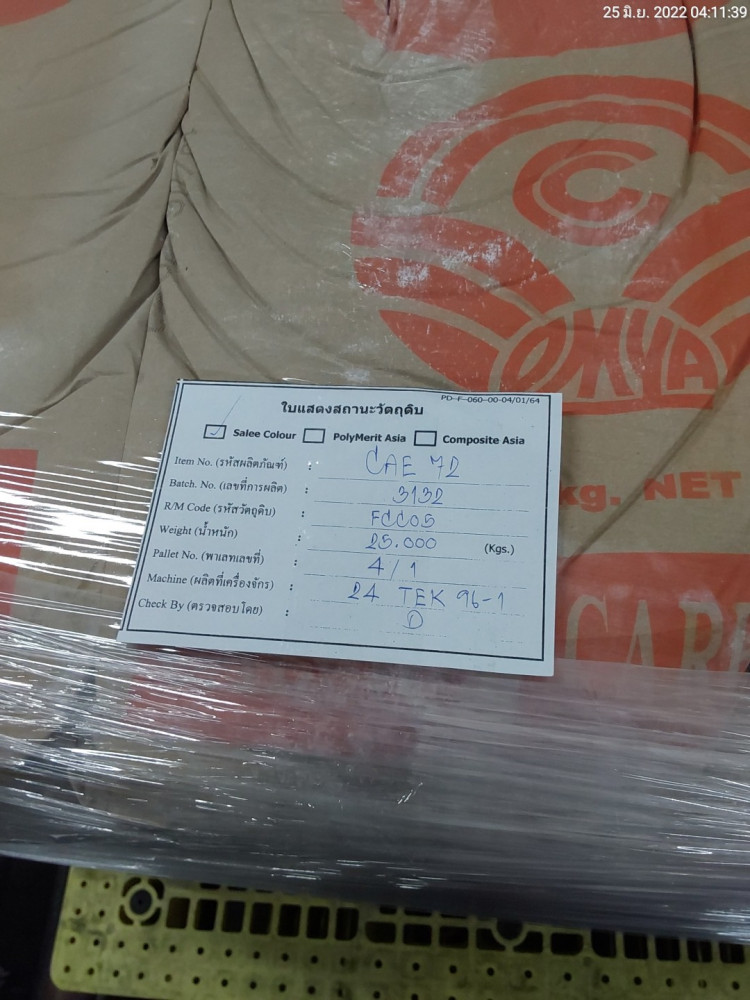 25 มิ.ย. 2022 04:11:39
C
OMYA
kg. NET
CARB
PD-F-060-00-04/01/64
ใบแสดงสถานะวัตถุดิบ
Salee Colour PolyMerit Asia Composite Asia
Item No. (รหัสผลิตภัณฑ์) : CAE 72
Batch. No. (เลขที่การผลิต) : 3132
R/M Code (รหัสวัตถุดิบ) : FCC05
Weight (น้ำหนัก) : 25.000 (Kgs.)
Pallet No. (พาเลทเลขที่) : 4/1
Machine (ผลิตที่เครื่องจักร) : 24 TEK 96-1
Check By (ตรวจสอบโดย) : D